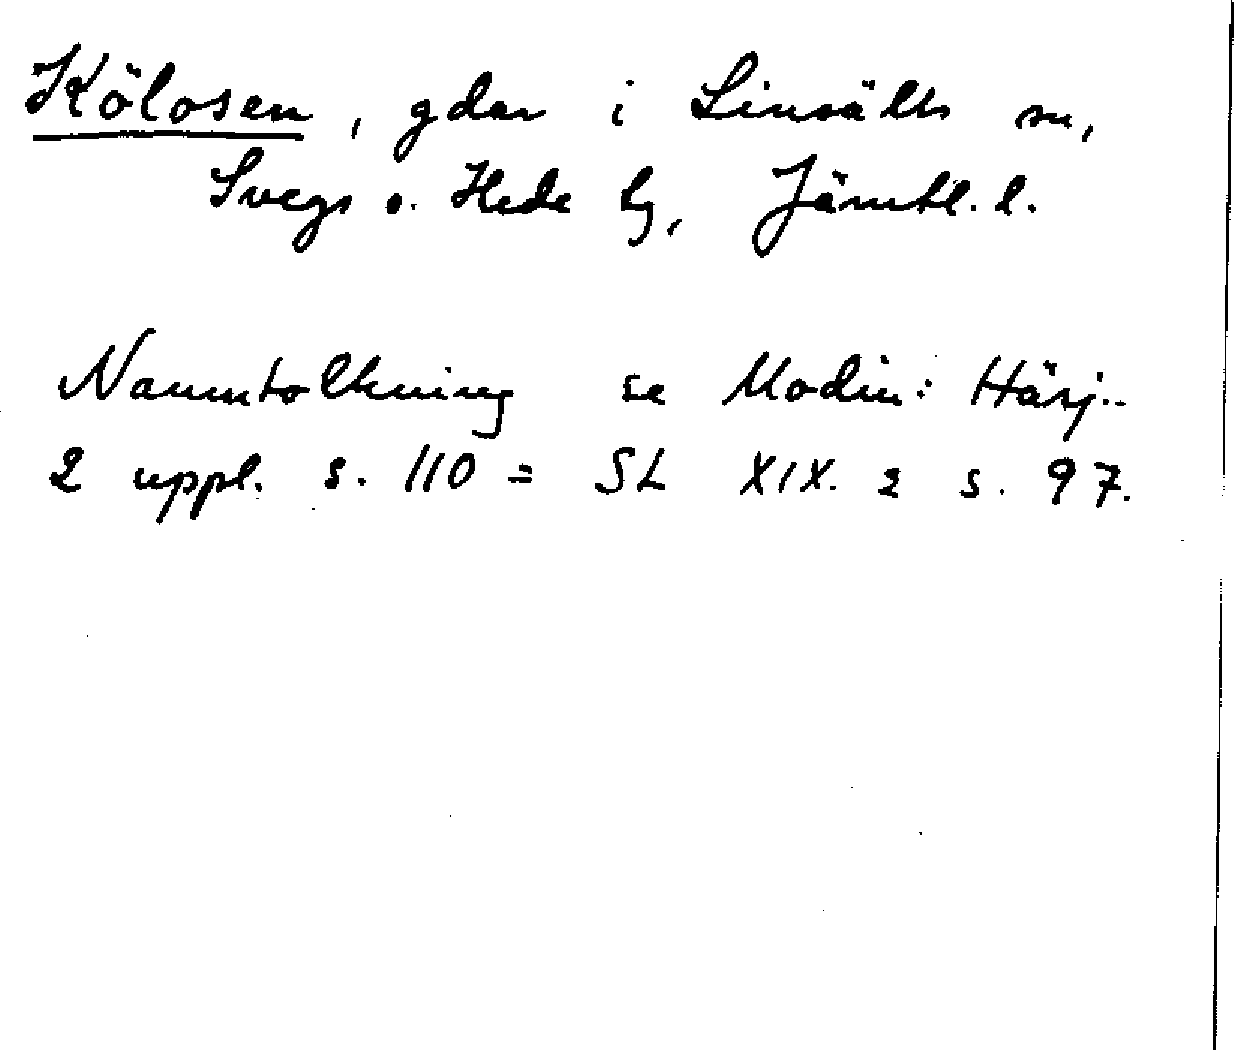 Kölosen, gdar i Linsälls sn,
Svegs o. Hede tg, Jämtl. l.
Namntolkning se Modin: Härj..
2 uppl. s. 110 = SL XIX. 2 s. 97.